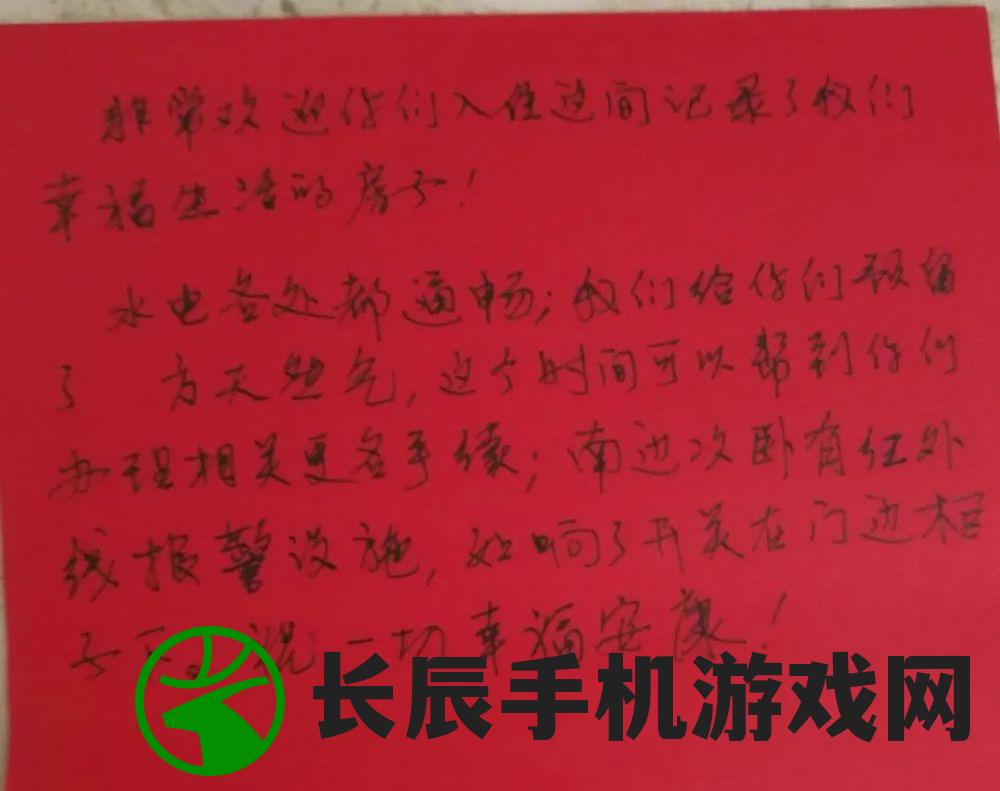 非常欢迎你们入住这间记录了我们
幸福生活的房子！
水电各处都通畅；我们给你们预留
了 方天然气，这个时间可以帮到你们
办理相关更名手续；南边次卧有红外
线报警设施，如响了开关在门边柜
子下。祝一切幸福安康！
长辰手机游戏网